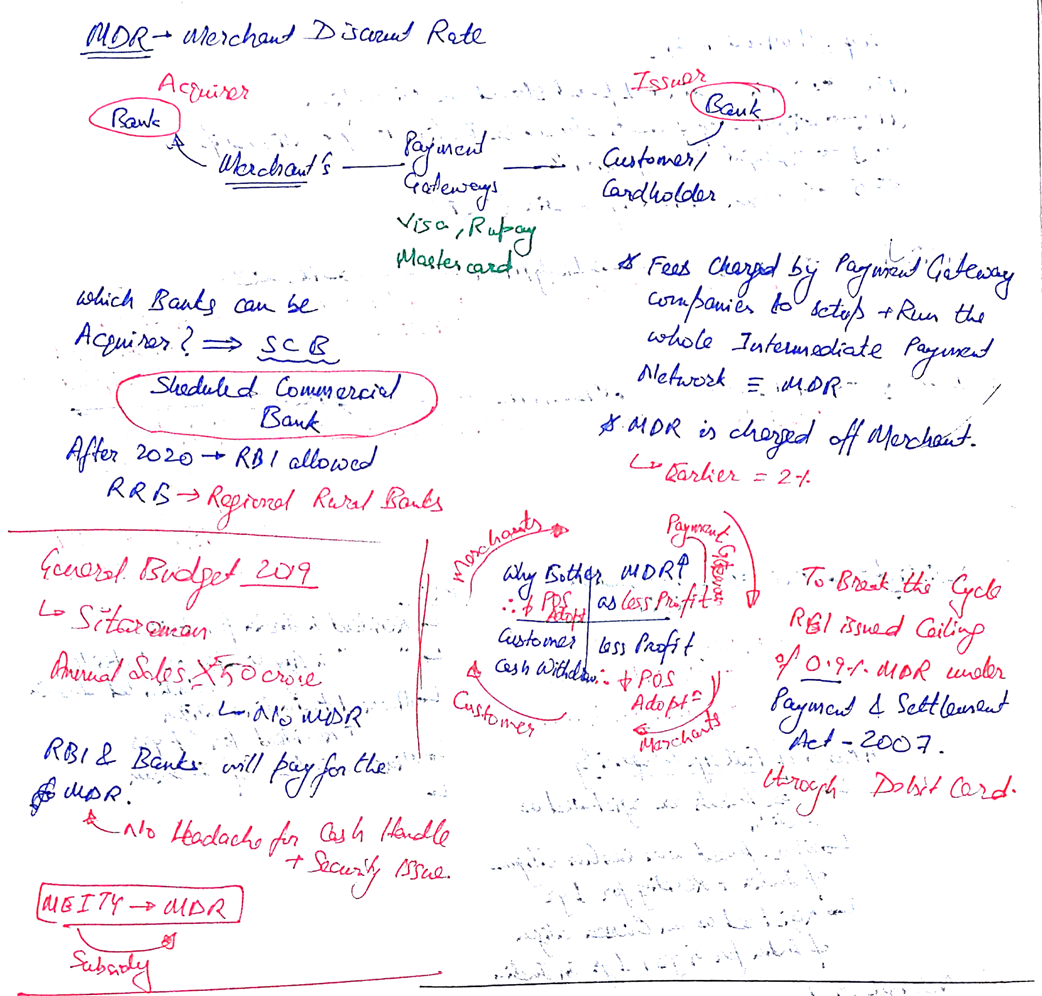 MDR → Merchant Discount Rate
Acquirer
Bank
Issuer
Bank
Merchant's
Payment
Gateways
Visa, Rupay
Mastercard
Customer/
Cardholder
which Banks can be
Acquirer? ⇒ SCB
Sheduled Commercial
Bank
After 2020 → RBI allowed
RRB → Regional Rural Banks
* Fees Charged by Payment Gateway
companies to setup + Run the
whole Intermediate Payment
Network ≡ MDR
* MDR is charged off Merchant.
↳ Earlier = 2%
General Budget 2019
↳ Sitaraman
Annual Sales 50 crore
↳ No MDR
RBI & Banks will pay for the
MDR.
No Headache for Cash Handle
+ Security Issue.
MEITY → MDR
Subsidy
Merchants
Payment Gateways
Why Bother
∴ ↓ POS
Adopt
MDR ↑
as less Profit
Customer
Cash Withdraw
Less Profit.
∴ ↓ POS
Adopt
Customer
Merchants
To Break the Cycle
RBI issued Ceiling
of 0.9% MDR under
Payment & Settlement
Act - 2007.
through Debit Card.